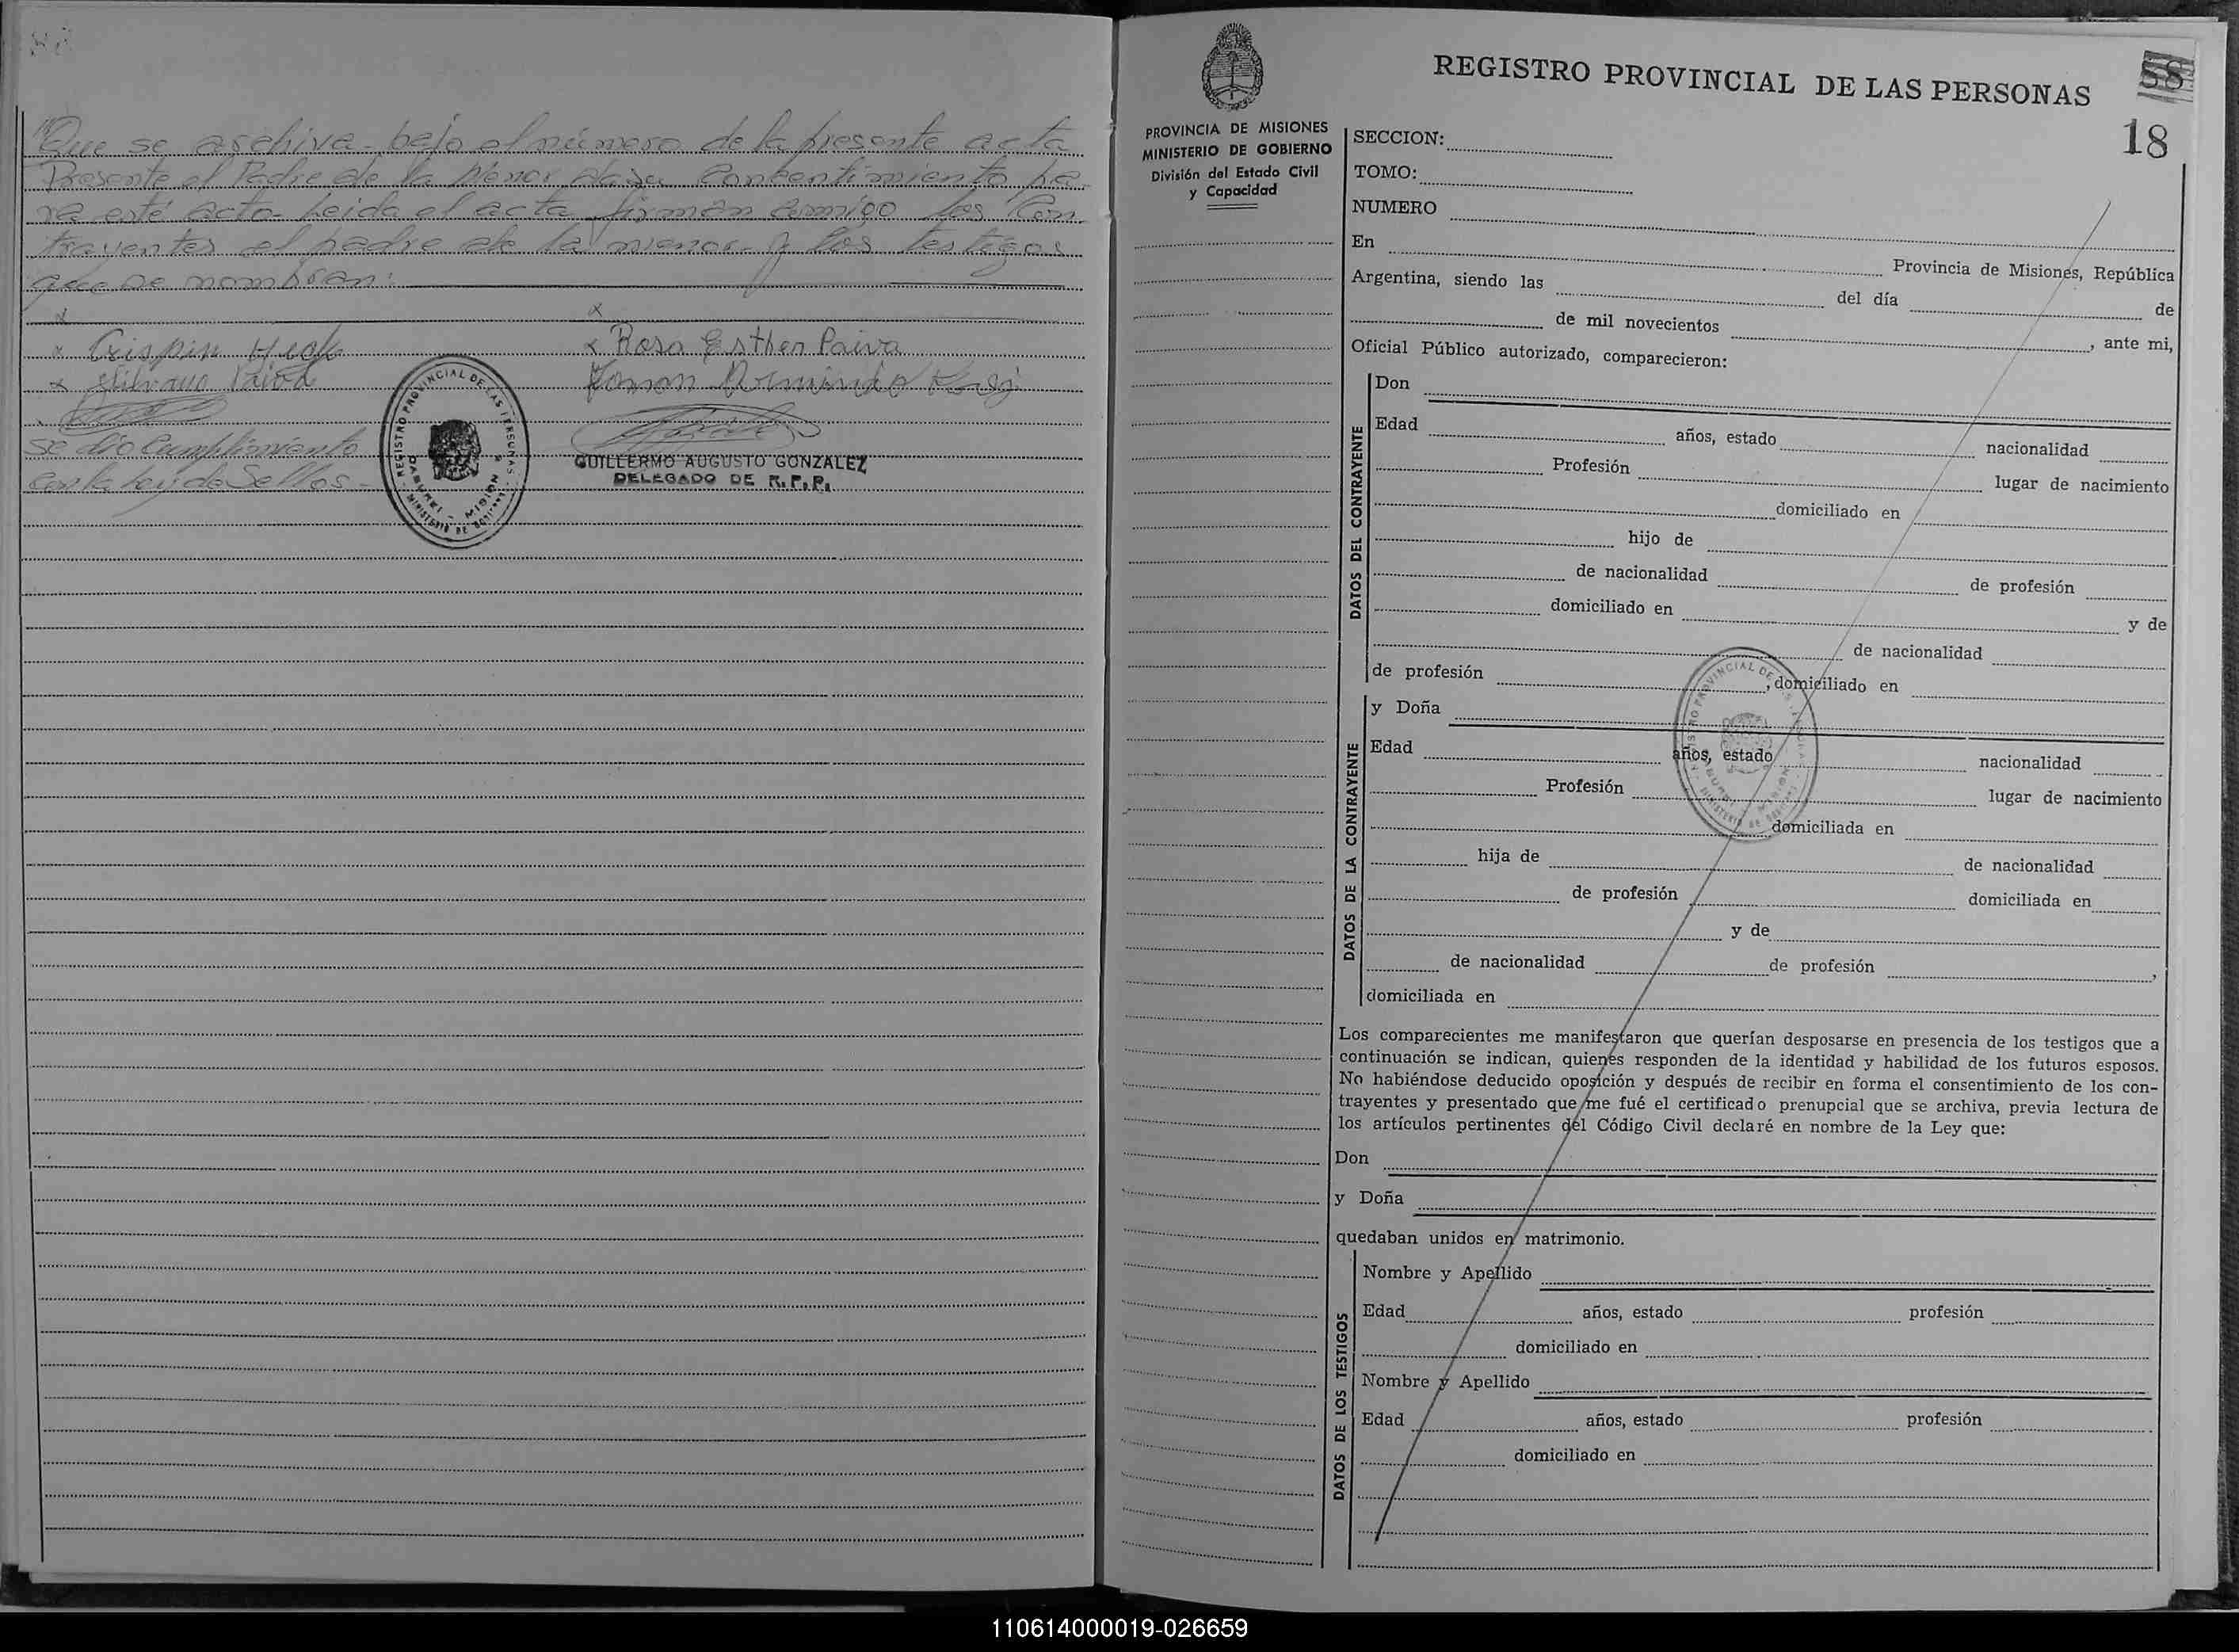 Que se archiva bajo el número de la presente acta
Presente el Padre de la Menor da su Consentimiento pa-
ra esté acto- Leida el acta firman conmigo los Con
trayentes el padre de la menor y los testigos
que se nombran:
x Crispin
x Rosa Esther Paiva
x Silvano Paiva
Ramon Armindo
se dio Cumplimiento
con la Ley de Sellos-
REGISTRO PROVINCIAL DE LAS PERSONAS
MINISTERIO DE
GUILLERMO AUGUSTO GONZALEZ
DELEGADO DE R.P.P.
REGISTRO PROVINCIAL DE LAS PERSONAS
18
PROVINCIA DE MISIONES
MINISTERIO DE GOBIERNO
División del Estado Civil
y Capacidad
SECCION:
TOMO:
NUMERO
En Provincia de Misiones, República
Argentina, siendo las del día de
de mil novecientos , ante mi,
Oficial Público autorizado, comparecieron:
DATOS DEL CONTRAYENTE
Don
Edad años, estado nacionalidad
Profesión lugar de nacimiento
domiciliado en
hijo de
de nacionalidad de profesión
domiciliado en y de
de nacionalidad
de profesión , domiciliado en
DATOS DE LA CONTRAYENTE
y Doña
Edad años, estado nacionalidad
Profesión lugar de nacimiento
domiciliada en
hija de de nacionalidad
de profesión domiciliada en
y de
de nacionalidad de profesión ,
domiciliada en
Los comparecientes me manifestaron que querían desposarse en presencia de los testigos que a
continuación se indican, quienes responden de la identidad y habilidad de los futuros esposos.
No habiéndose deducido oposición y después de recibir en forma el consentimiento de los con-
trayentes y presentado que me fué el certificado prenupcial que se archiva, previa lectura de
los artículos pertinentes del Código Civil declaré en nombre de la Ley que:
Don
y Doña
quedaban unidos en matrimonio.
DATOS DE LOS TESTIGOS
Nombre y Apellido
Edad años, estado profesión
domiciliado en
Nombre y Apellido
Edad años, estado profesión
domiciliado en
110614000019-026659